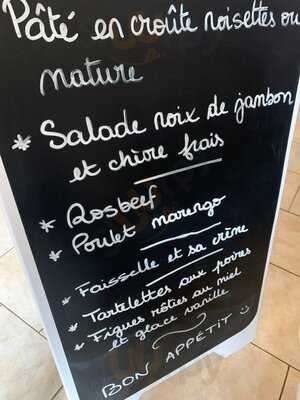 Pâté en croûte noisettes ou
nature
* Salade noix de jambon
et chèvre frais
* Rosbeef
* Poulet marengo
* Faisselle et sa crème
* Tartelettes aux poires
* Figues rôties au miel
et glace vanille
BON APPÉTIT :)